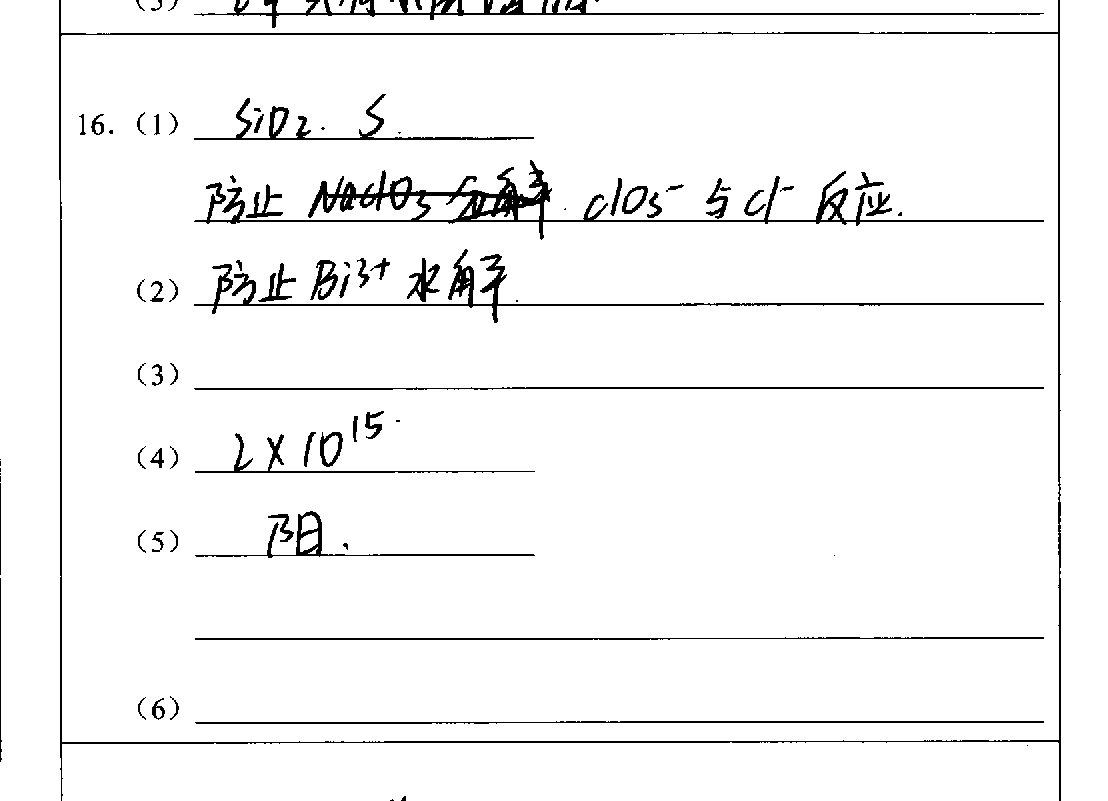 16.（1） SiO2. S.
防止 ClO3⁻ 与 Cl⁻ 反应.
（2） 防止 Bi³⁺ 水解.
（3）
（4） 2×10¹⁵.
（5） 阳.
（6）